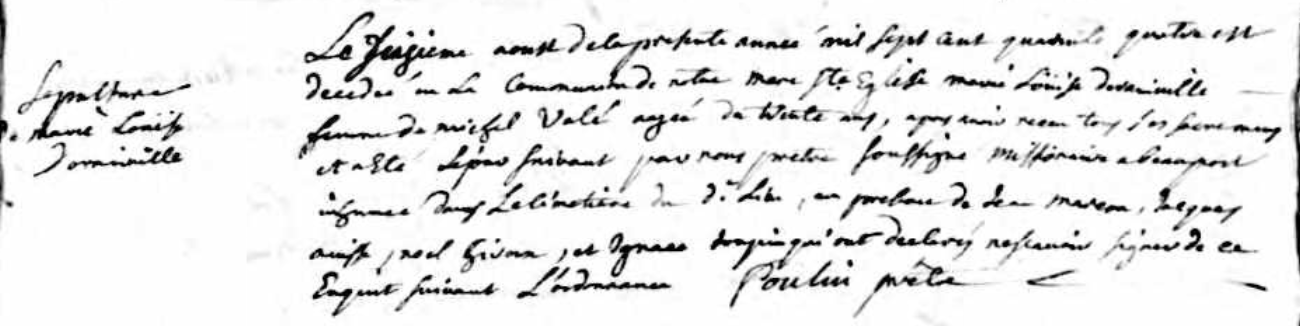 Sepulture
marie Louise
Dorainville
Le seizieme aoust de la presente année mil sept cent quarante quatre est
decedée en La Communion de notre mere Ste Eglise marie Loüise derainville
femme de michel Valé agée de trente ans, apres avoir receu tous Les sacremens
et a Eté Le jour suivant par nous pretre soussigné missionnaire a beauport
inhumée dans Le Cimetiere du d. Lieu, en presence de Jean marcou, Jacques
noel Giroux, et Ignace qui ont declaré ne scavoir signer de ce
Enquit suivant L'ordonnance Poulin prêtre